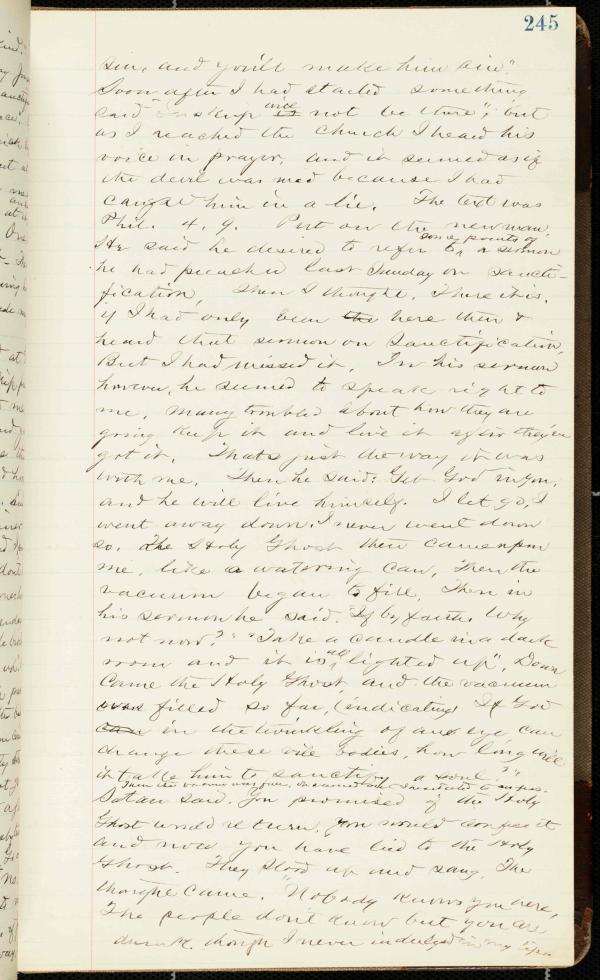 245
sin, and you'll make him an
Soon after I had started something
said " will not be there"; but
as I reached the church I heard his
voice in prayer, and it seemed as if
the devil was mad because I had
caught him in a lie. The text was
Phil. 4, 9. Put on the new man.
He said he desired to refer to some points of a sermon
he had preached last Sunday on sancti-
fication, Then I thought, There it is,
if I had only been the here then &
heard that sermon on Sanctification,
But I had missed it, In his sermon
however, he seemed to speak right to
me, many troubled about how they are
going keep it and live it after they've
got it. Thats just the way it was
with me. Then he said: Get God in you,
and he will live himself. I let go, I
went away down. I never went down
so. The Holy Ghost then came upon
me, like a watering can, Then the
vacuum began to fill, Then in
his sermon he said. "If by faith, Why
not now?" "Take a candle in a dark
room and it is all lighted up", Down
came the Holy Ghost, and the vacuum
was filled so far, (indicating) If God
can in the twinkling of an eye can
change these vile bodies, how long will
it take him to sanctify a soul?"
Then the
Satan said. You promised if the Holy
Ghost would return, you would confess it
and now you have lied to the Holy
Ghost. They stood up and sang, The
thought came, "Nobody knows you here,
The people don't know but you are
drunk, though I never indulged in my life